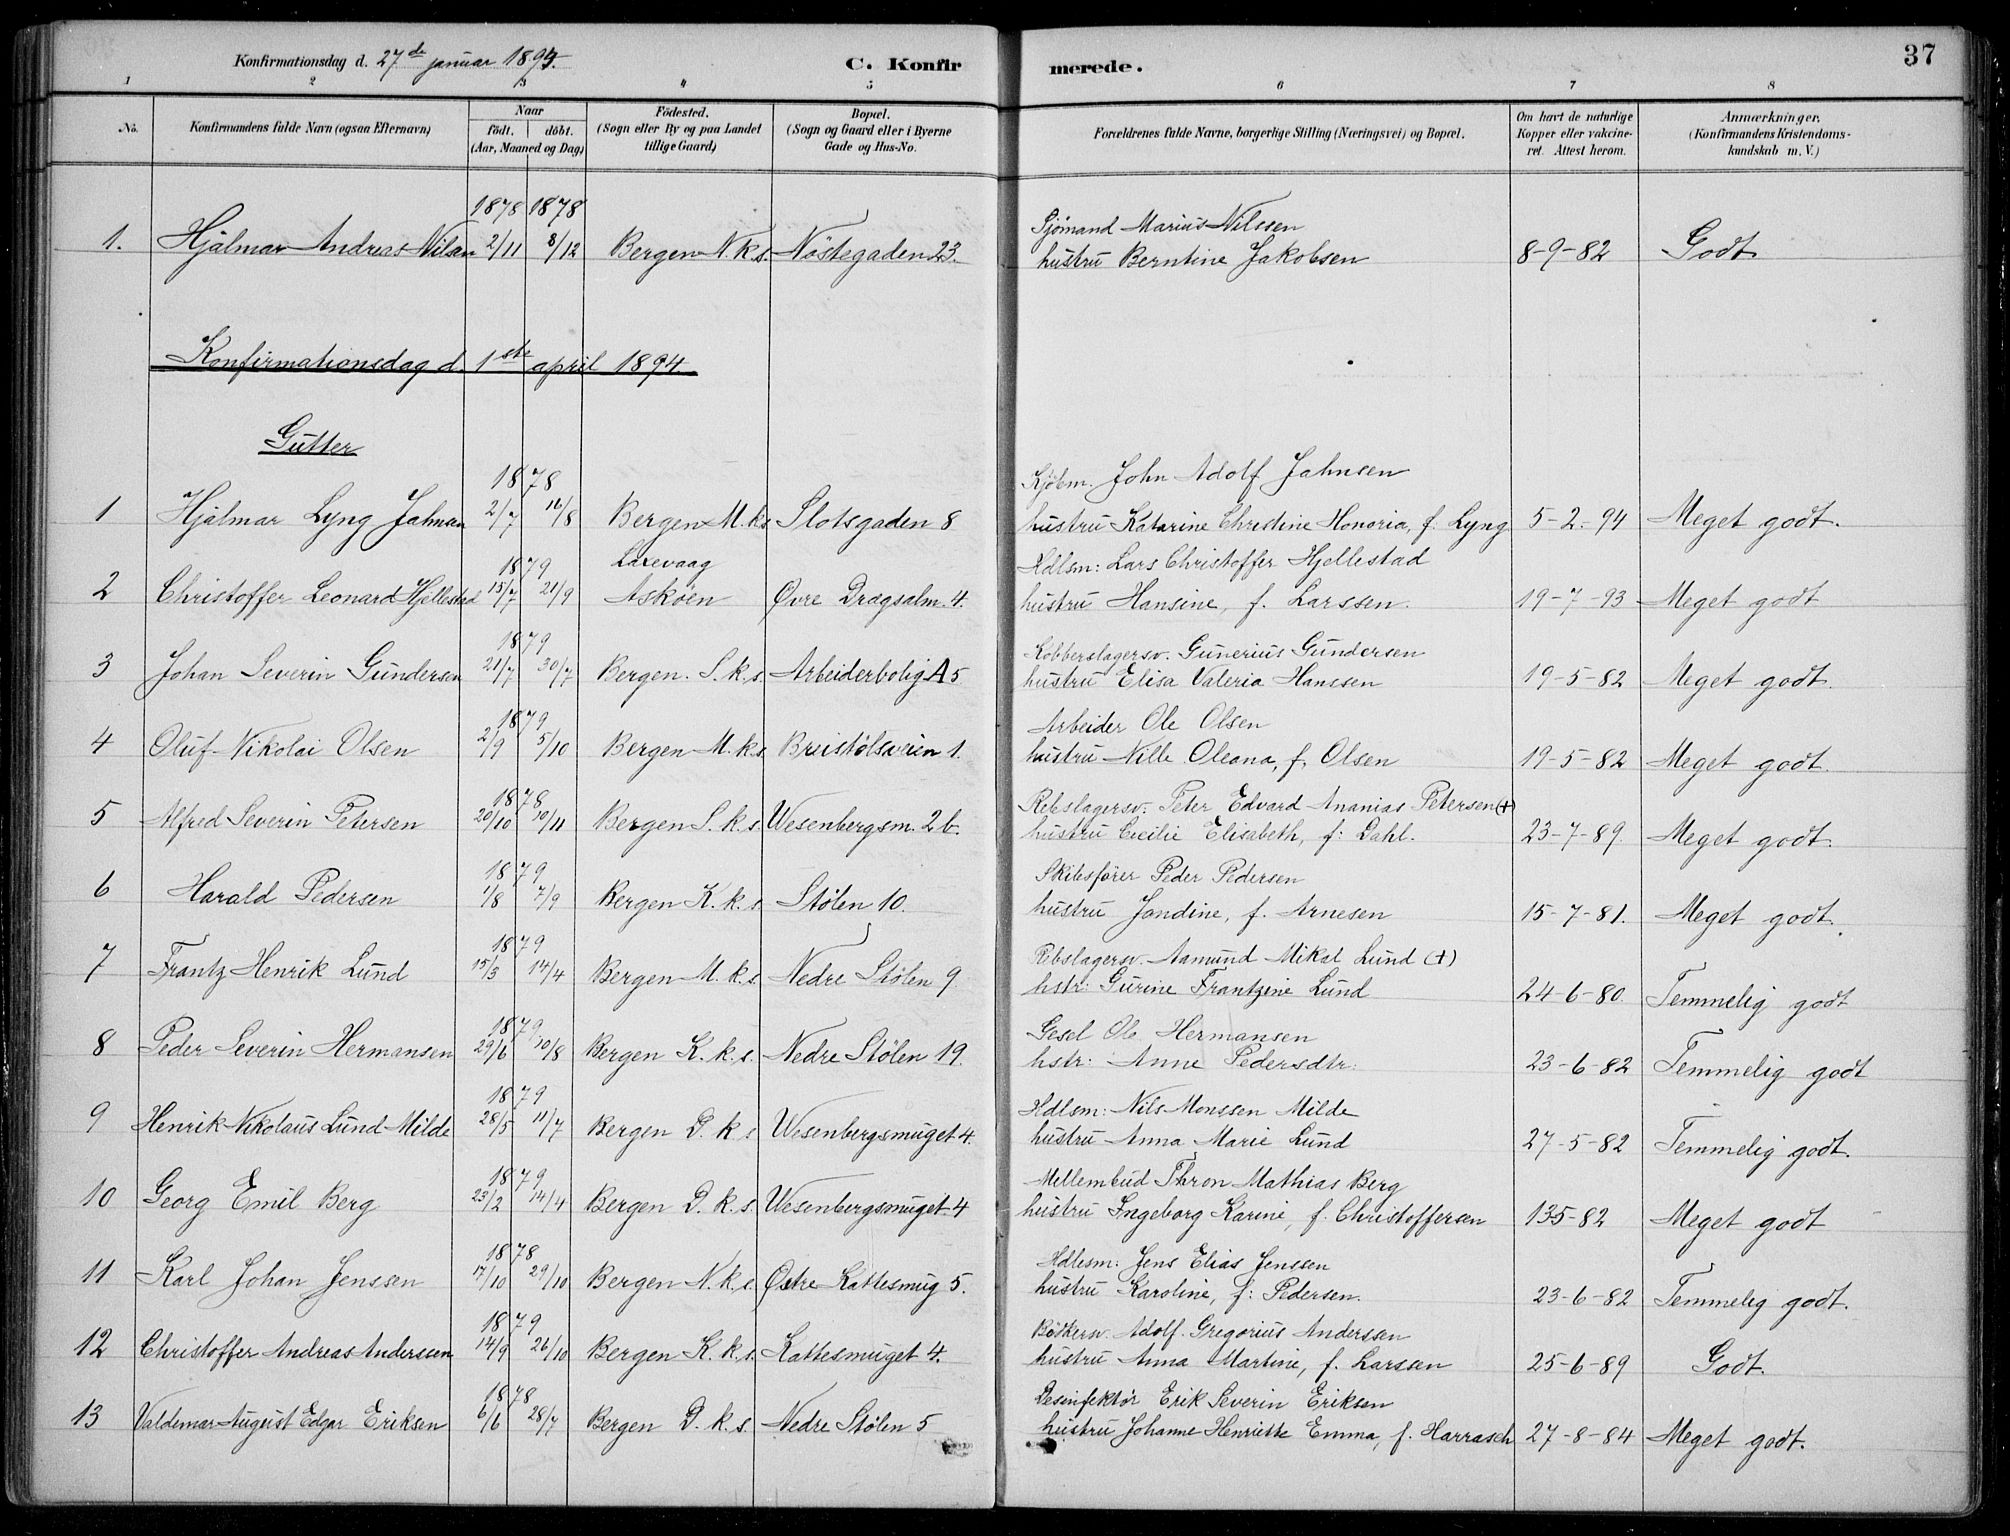 Konfirmationsdag d. 27de januar 1894. C. Konfirmerede. 37
1 2 3 4 5 6 7 8
No. Konfirmandens fulde Navn (ogsaa Efternavn) Naar födt. döbt. (Aar, Maaned og Dag) Födested. (Sogn eller By og paa Landet tillige Gaard) Bopæl. (Sogn og Gaard eller i Byerne Gade og Hus-No. Forældrenes fulde Navne, borgerlige Stilling (Næringsvei) og Bopæl. Om havt de naturlige Kopper eller vakcineret. Attest herom. Anmærkninger. (Konfirmandens Kristendomskundskab m. V.)
1878 1878 Sjømand Marius Nilssen
1. Hjalmar Andreas Nilsen 2/11 8/12 Bergen N.k.s. Nöstegaden 23. hustru Berntine Jakobsen 8-9-82 Godt
Konfirmationsdag d. 1ste april 1894
Gutter
1878 Kjöbm. John Adolf Jahnsen
1 Hjalmar Lyng Jahnsen 2/7 16/8 Bergen M.k.s. Slotsgaden 8 hustru Katarine Christine Honoria, f. Lyng 5-2-94 Meget godt.
1879 Laxevaag Hdlsm: Lars Christoffer Hjellestad
2 Christoffer Leonard Hjellestad 15/7 21/9 Askøen Øvre Dragsalm. 4. hustru Hansine, f. Larssen. 19-7-93 Meget godt
1879 Kobberslagersv. Gunerius Gundersen
3 Johan Severin Gundersen 21/7 30/7 Bergen. S.k.s. Arbeiderbolig A 5 hustru Elisa Valeria Hanssen 19-5-82 Meget godt.
1879 Arbeider Ole Olsen
4 Oluf Nikolai Olsen 2/9 5/10 Bergen M.k.s. Breistölsveien 1. hustru Nille Oleana, f. Olsen 19-5-82 Meget godt.
1878 Rebslagersv. Peter Edvard Ananias Petersen (+)
5 Alfred Severin Petersen 20/10 10/11 Bergen S.k.s. Wesenbergsm. 2b. hustru Cecilie Elisabeth, f: Dahl. 23-7-89. Meget godt.
1879 Skibsfører Peder Pedersen
6 Harald Pedersen 1/8 7/9 Bergen K.k.s. Stølen 10. hustru Jandine, f. Arnesen 15-7-81. Meget godt.
1879 Rebslagersv. Aamund Mikal Lund (+)
7 Frantz Henrik Lund 15/3 14/4 Bergen M.k.s. Nedre Stølen 9. hstr: Gurine Frantzine Lund 24-6-80. Temmelig godt
1879 Gesel Ole Hermansen
8 Peder Severin Hermansen 29/6 10/8 Bergen K.k.s. Nedre Stølen 19. hstr: Anne Pedersdtr. 23-6-82 Temmelig godt
1879 Hdlsm: Nils Monssen Milde
9 Henrik Nikolaus Lund Milde 28/5 11/7 Bergen D.k.s Wesenbergsmuget 4. hustru Anna Marie Lund 27-5-82 Temmelig godt.
1879 Mellembud Thron Mathias Berg
10 Georg Emil Berg 23/2 14/4 Bergen D.k.s. Wesenbergsmuget 4 hustru Ingeborg Karine, f. Christoffersen 13-5-82 Meget godt
1878 Hdlesm: Jens Elias Jenssen
11 Karl Johan Jenssen 17/10 29/10 Bergen N.k.s. Østre Kattesmug 5. hustru Karoline, f: Pedersen. 23-6-82 Temmelig godt.
1879 Bödkersv. Adolf Gregorius Anderssen
12 Christoffer Andreas Anderssen 14/9 26/10 Bergen K.k.s. Kattesmuget 4. hustru Anna Martine, f. Larssen 25-6-89 Godt.
1878 Desinfektör Erik Severin Eriksen
13 Valdemar August Edgar Eriksen 6/6 28/7 Bergen D.k.s. Nedre Stølen 5 hustru Johanne Henriette Emma, f. Harrasch 27-8-84 Meget godt.